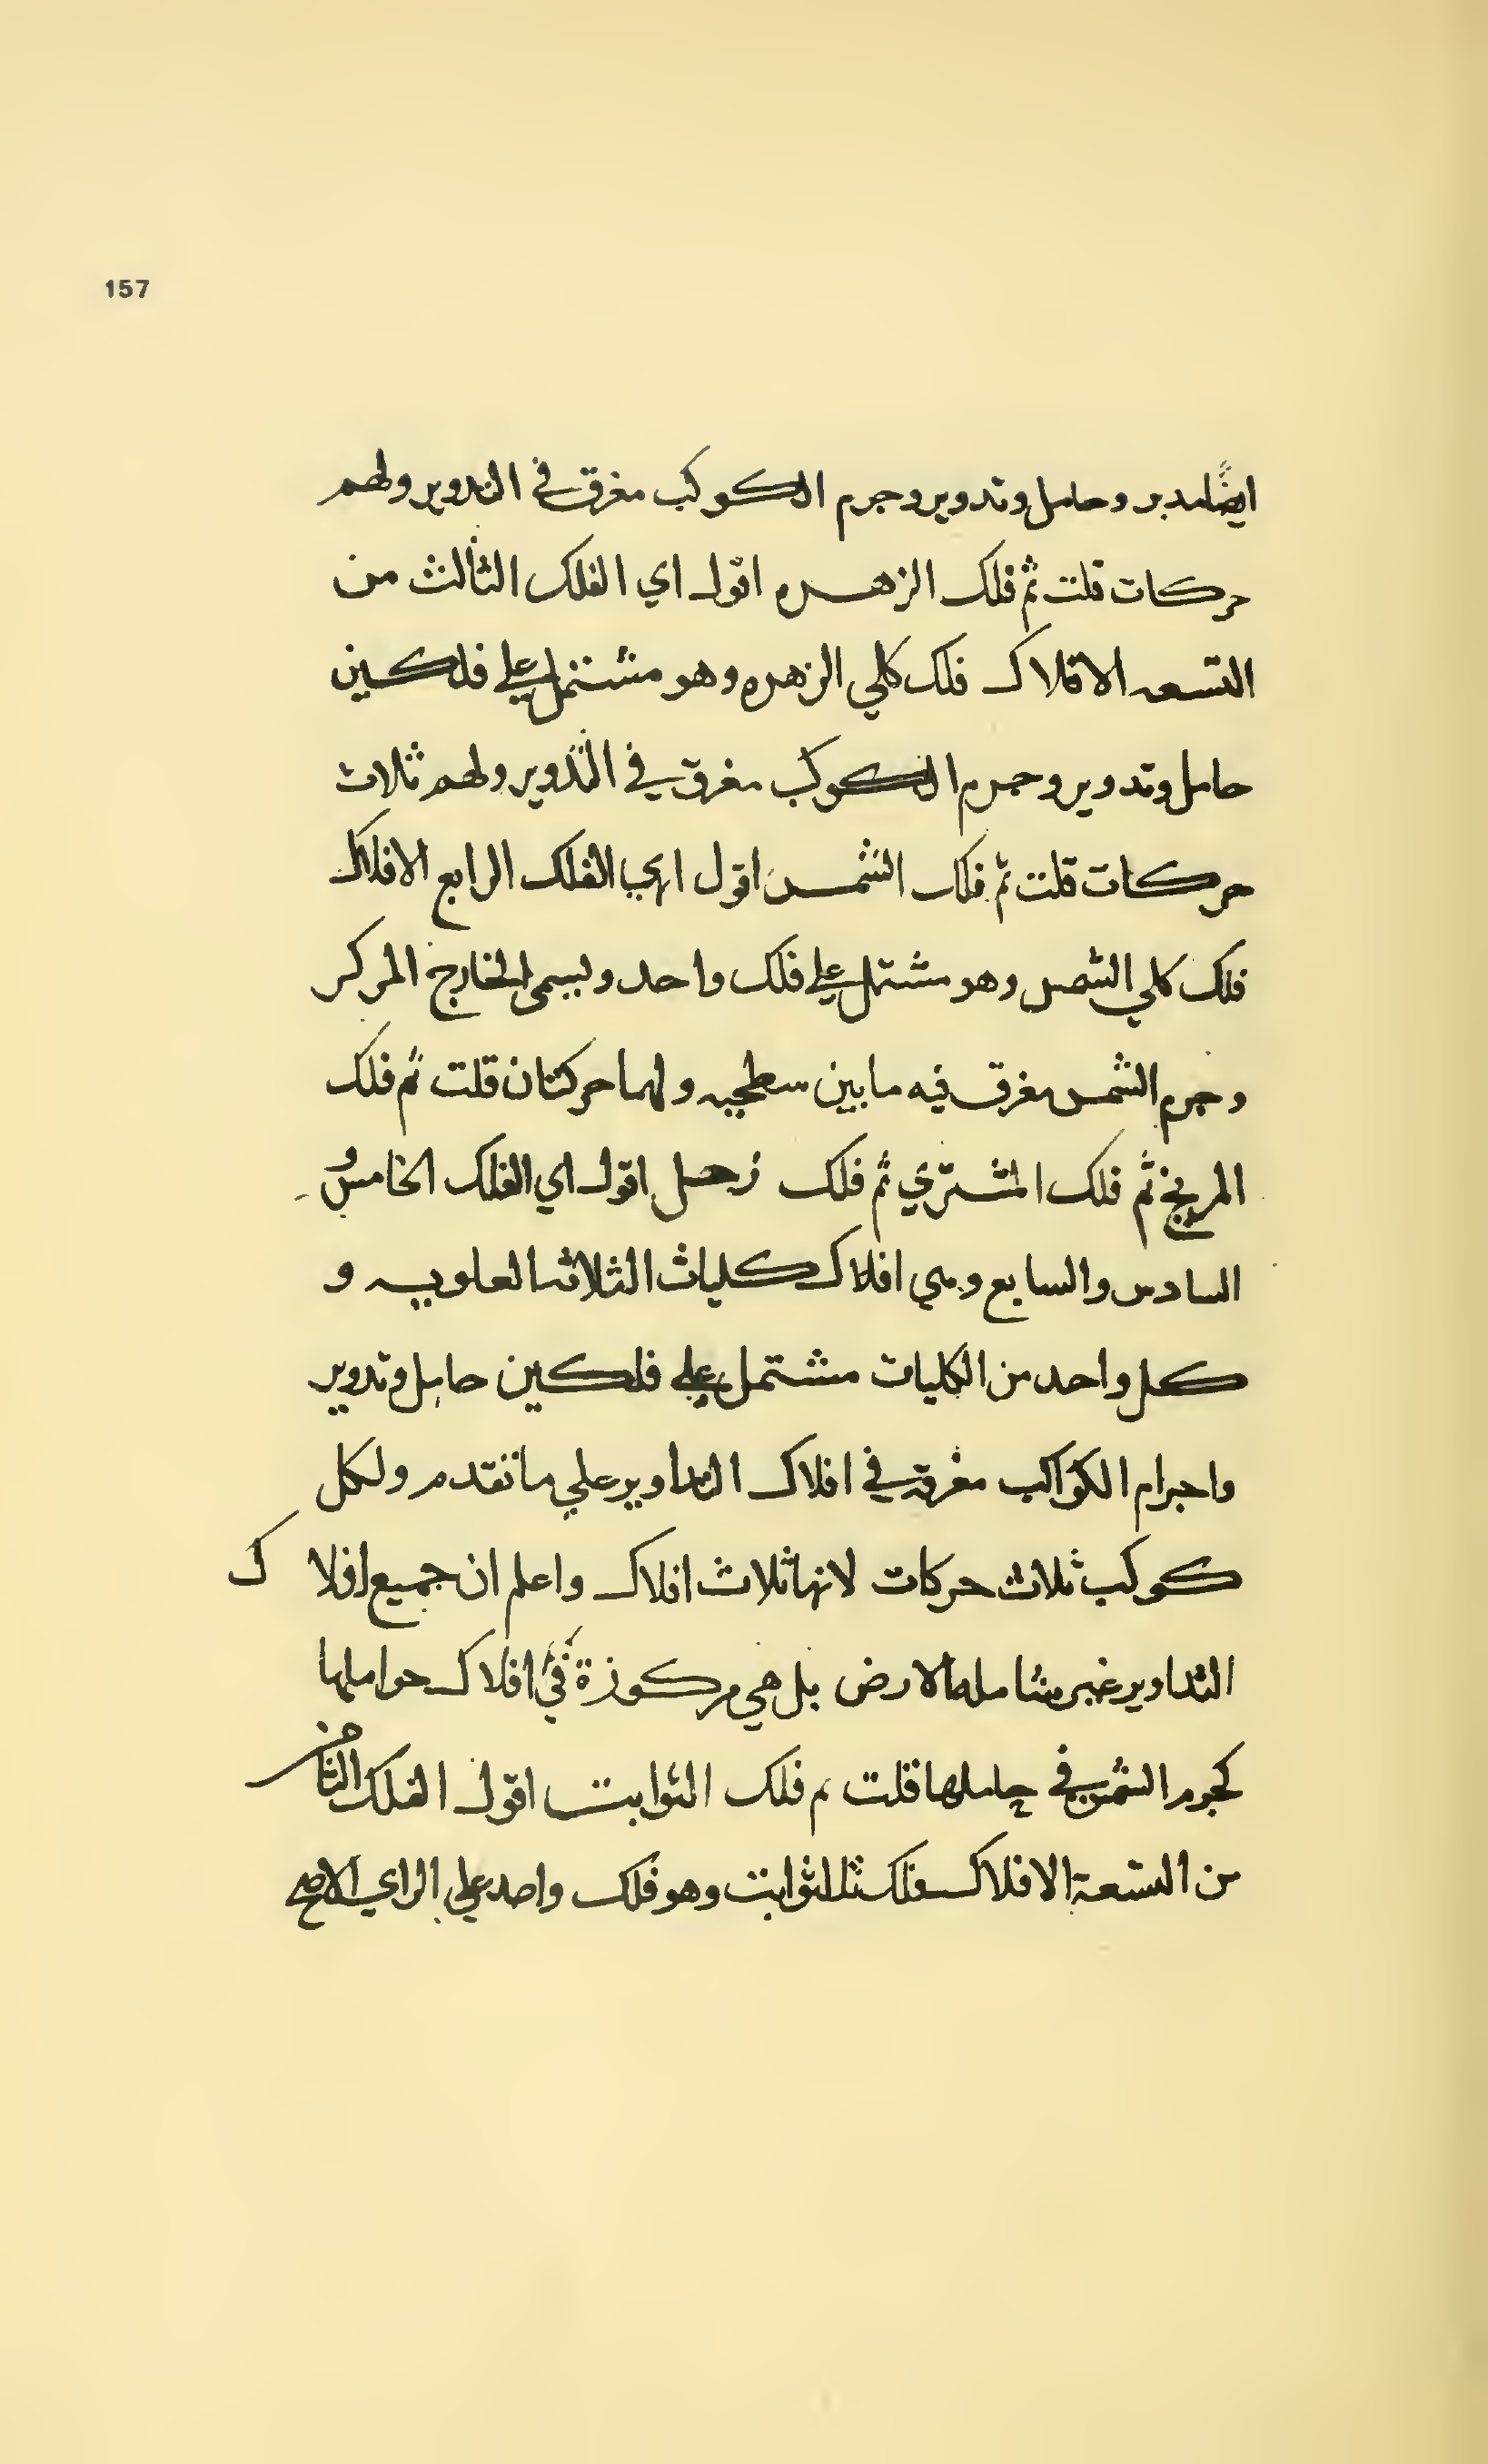 157
ايضًا مدير وحامل وتدوير وجرم الكوكب مغرق في التدوير ولهم
حركات قلت ثم فلك الزهره اقول اي الفلك الثالث من
التسعه الافلاك فلك كلي الزهره وهو مشتمل علي فلكين
حامل وتدوير وجرم الكوكب مغرق في التدوير ولهم ثلاث
حركات قلت ثم فلك الشمس اقول اي الفلك الرابع الافلاك
فلك كلي الشمس وهو مشتمل علي فلك واحد ويسمي الخارج المركز
وجرم الشمس مغرق فيه ما بين سطحيه ولهما حركتان قلت ثم فلك
المريخ ثم فلك المشتري ثم فلك زحل اقول اي الفلك الخامس و
السادس والسابع وهي افلاك كليات الثلاثه العلويه و
كل واحد من الكليات مشتمل علي فلكين حامل وتدوير
واجرام الكواكب مغرقه في افلاك التداوير علي ما تقدم ولكل
كوكب ثلاث حركات لانها ثلاث افلاك واعلم ان جميع افلاك
التداوير غير شامله الارض بل هي مركوزة في افلاك حواملها
كجرم الشمس في حاملها قلت ثم فلك الثوابت اقول الفلك الثامن
من التسعة الافلاك فلك الثوابت وهو فلك واحد علي الراي الاصح